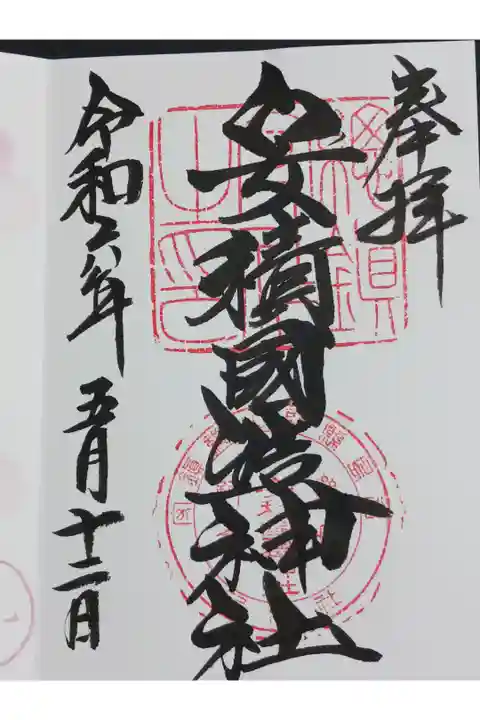 奉拝
安積國造神社
令和六年
五月十二日